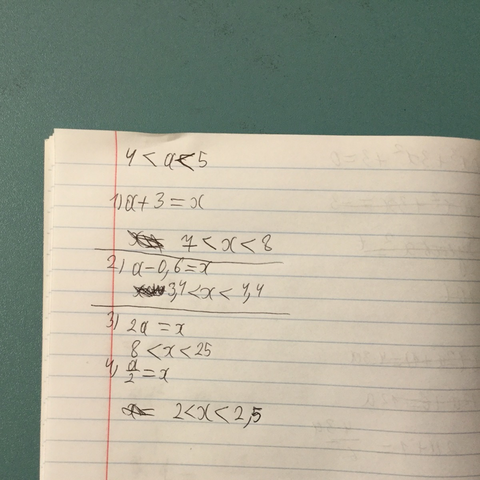 4 < a < 5
1) a + 3 = x
7 < x < 8
2) a - 0,6 = x
3,4 < x < 4,4
3) 2a = x
8 < x < 25
4) a/2 = x
2 < x < 2,5